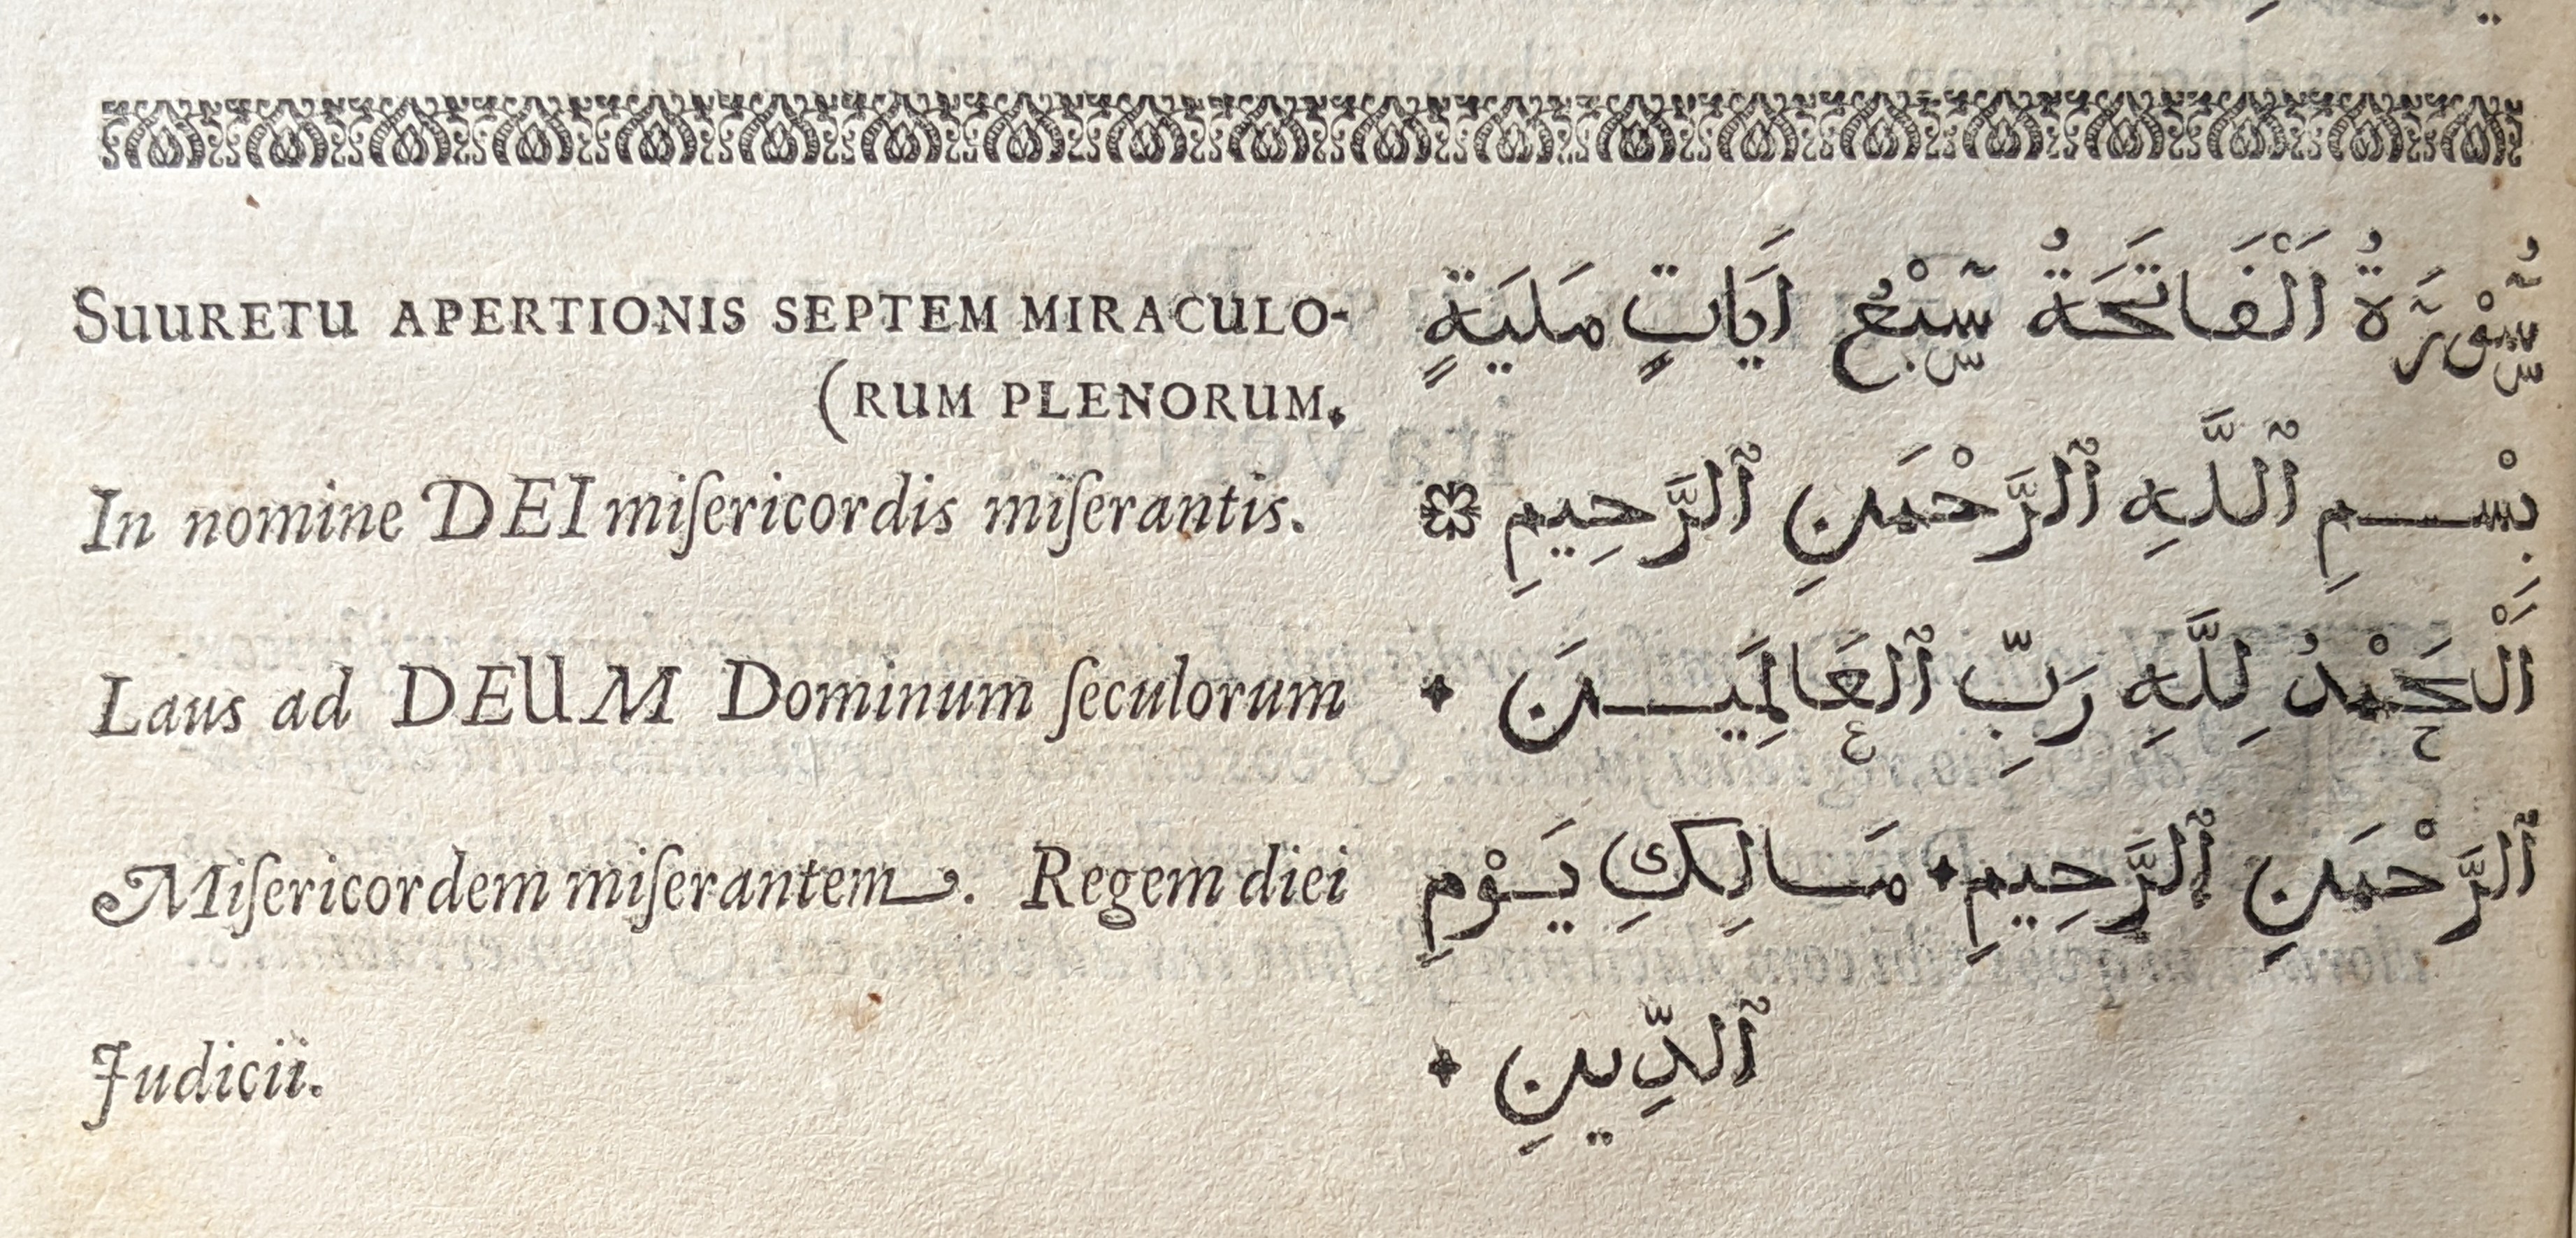 SUURETU APERTIONIS SEPTEM MIRACULO-
(RUM PLENORUM.
In nomine DEI miſericordis miſerantis.
Laus ad DEUM Dominum ſeculorum
Miſericordem miſerantem. Regem diei
Judicii.
سُّوْرَةُ اَلْفَاتَحَةُ سَبْعُ اَيَاتٍ مَلَيَةٍ
بِسْـــمِ ٱللَّهِ ٱلرَّحْمَنِ ٱلرَّحِيمِ
اَلْحَمْدُ لِلَّهِ رَبِّ ٱلعَالِمَيـــنَ
ٱلرَّحْمَنِ ٱلرَّحِيمِ مَـالِكِ يَـوْمِ
ٱلدِّينِ